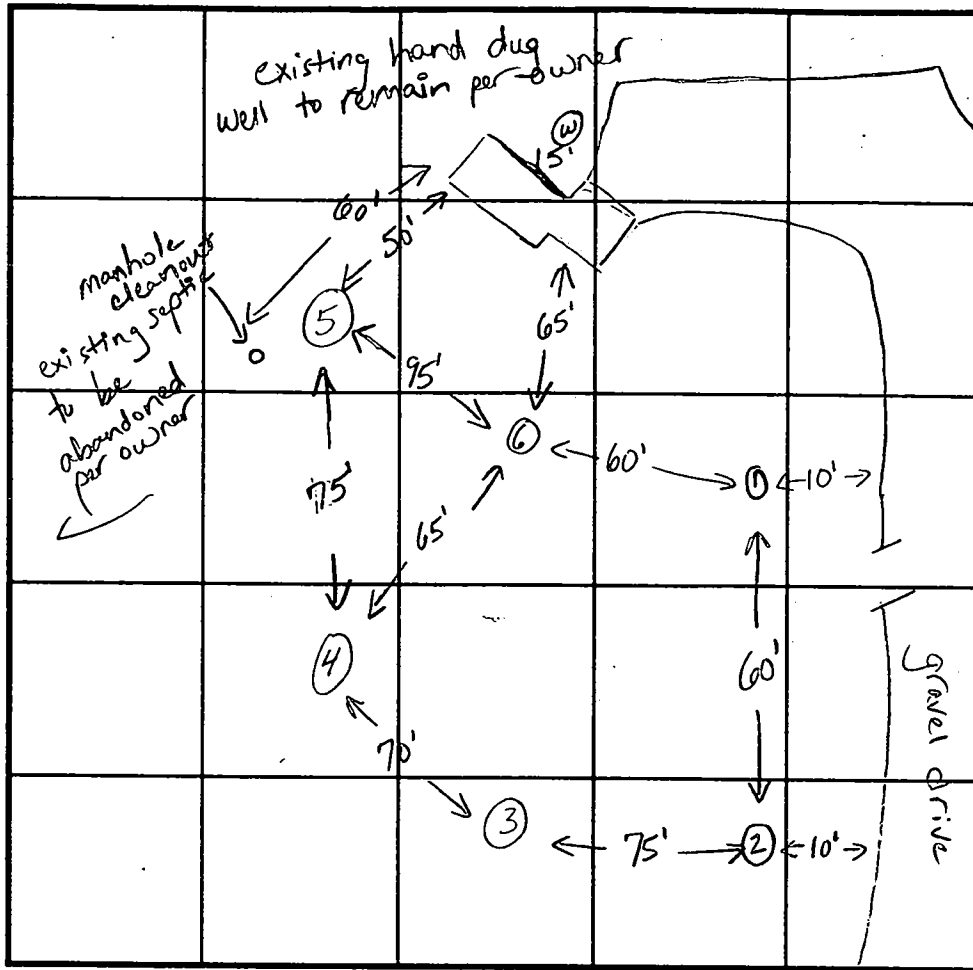 existing hand dug
well to remain per owner
W
5'
60'
50'
manhole
cleanout
existing septic
to be
abandoned
per owner
5
65'
95'
6
60'
1
10'
75'
65'
4
60'
gravel drive
70'
3
75'
2
10'